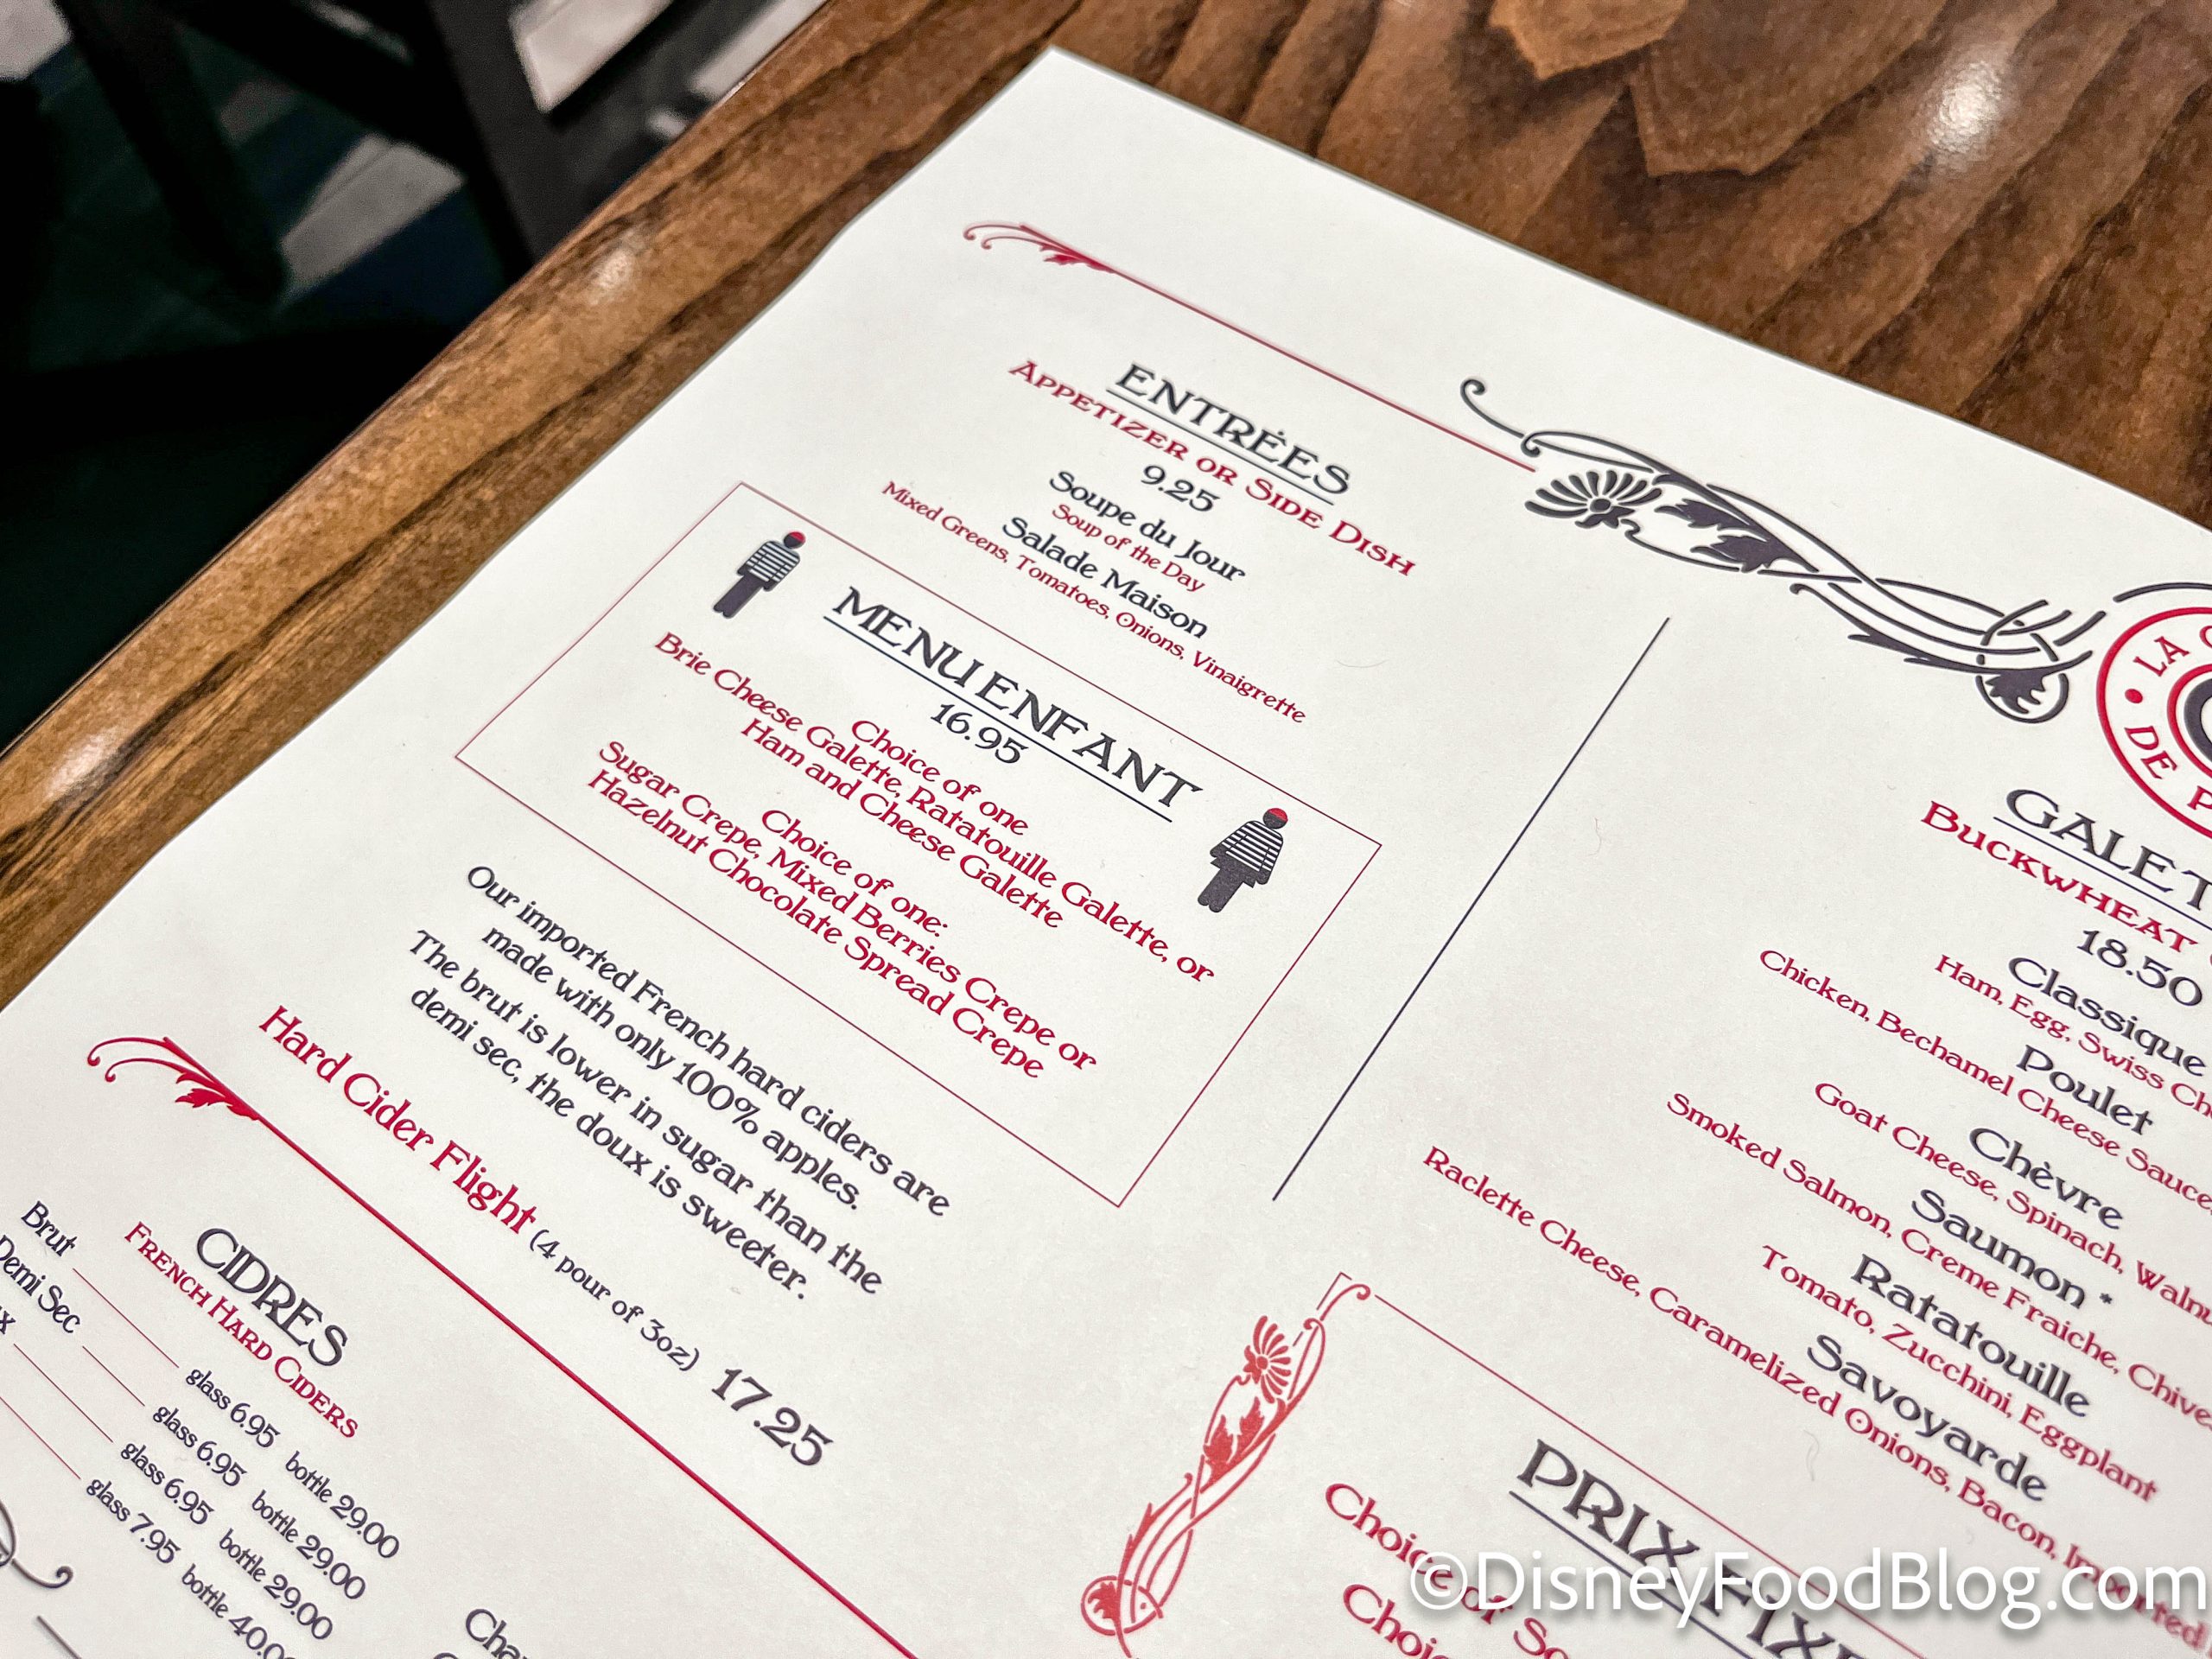 ENTRÉES
APPETIZER OR SIDE DISH
9.25
Soupe du Jour
Soup of the Day
Salade Maison
Mixed Greens, Tomatoes, Onions, Vinaigrette
MENU ENFANT
16.95
Choice of one
Brie Cheese Galette, Ratatouille Galette, or
Ham and Cheese Galette
Choice of one:
Sugar Crepe, Mixed Berries Crepe or
Hazelnut Chocolate Spread Crepe
Our imported French hard ciders are
made with only 100% apples.
The brut is lower in sugar than the
demi sec, the doux is sweeter.
Hard Cider Flight (4 pour of 3oz) 17.25
CIDRES
FRENCH HARD CIDERS
Brut glass 6.95 bottle 29.00
Demi Sec glass 6.95 bottle 29.00
glass 6.95 bottle 29.00
glass 7.95 bottle 40.00
LA
DE
BUCKWHEAT
18.50
Classique
Ham, Egg, Swiss
Poulet
Chicken, Bechamel Cheese Sauce
Chèvre
Goat Cheese, Spinach,
Saumon *
Smoked Salmon, Creme Fraiche,
Ratatouille
Tomato, Zucchini, Eggplant
Savoyarde
Raclette Cheese, Caramelized Onions, Bacon, Imported
PRIX FIXE
Choice of
©DisneyFoodBlog.com